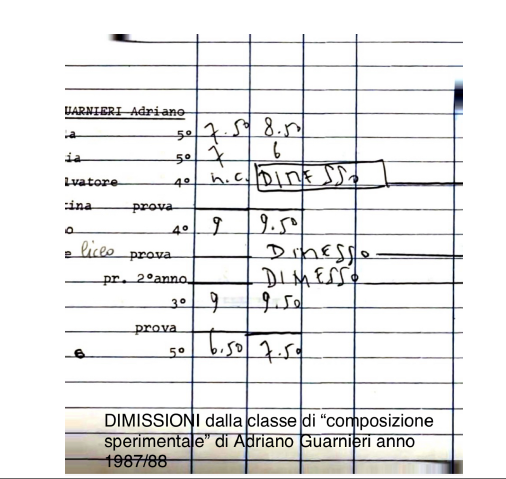 UARNIERI Adriano
a 5° 7.50 8.50
ia 5° 7 6
lvatore 4° n.c. DIMESSO
tina prova
o 4° 9 9.50
e liceo prova DIMESSO
pr. 2°anno DIMESSO
3° 9 9.50
prova
e 5° 6.50 7.50
DIMISSIONI dalla classe di “composizione
sperimentale” di Adriano Guarnieri anno
1987/88